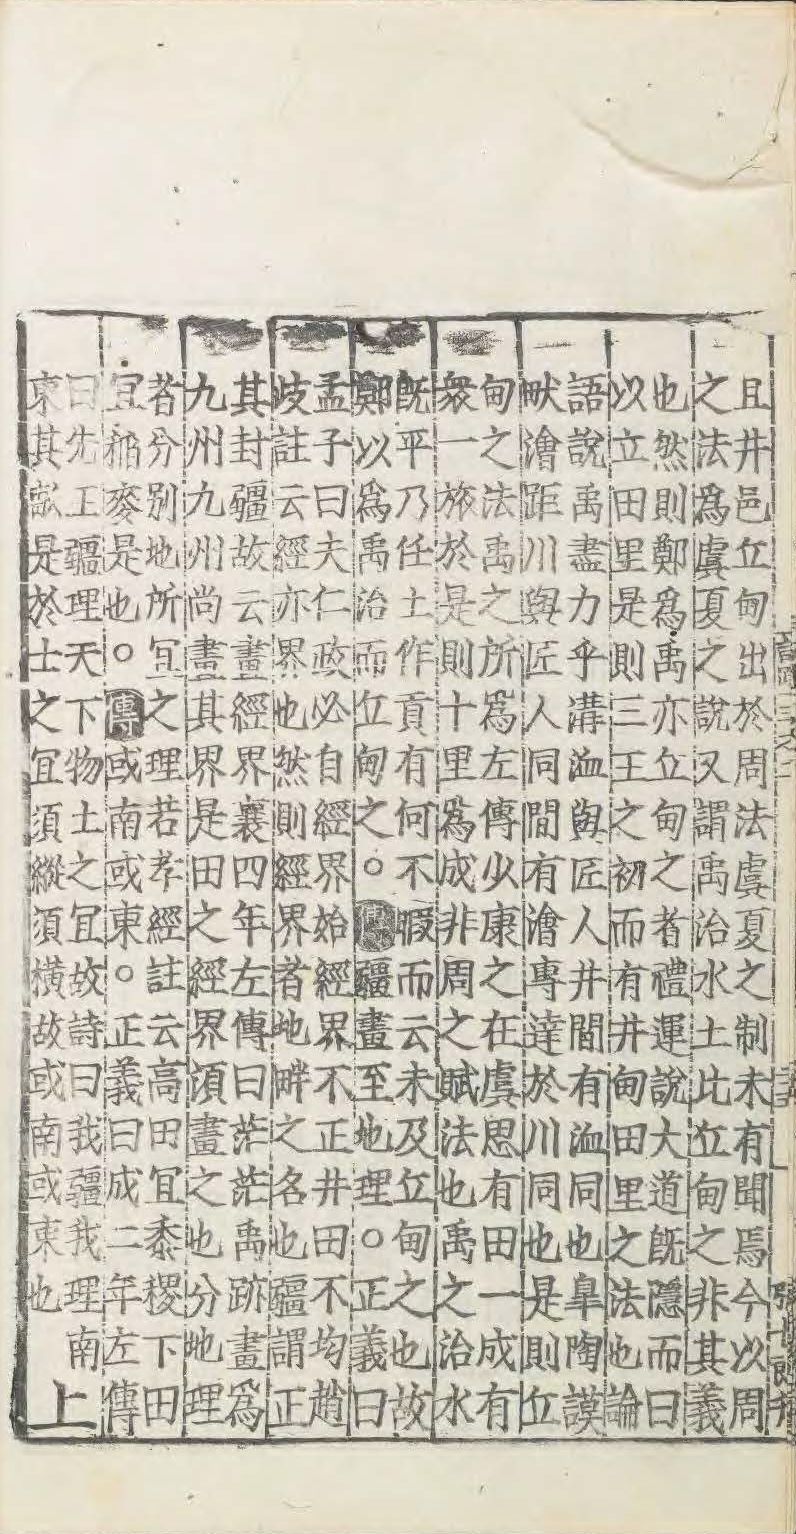 且井邑丘甸出於周法虞夏之制未有聞焉今以周
之法為虞夏之說又謂禹治水土此丘甸之非其義
也然則鄭為禹亦丘甸之者禮運說大道既隱而曰
以立田里是則三王之初而有井甸田里之法也論
語說禹盡力乎溝洫與匠人井間有洫同也臯陶謨
畎澮距川與匠人同間有澮專達於川同也是則丘
甸之法禹之所為左傳少康之在虞思有田一成有
衆一旅於是則十里為成非周之賦法也禹之治水
既平乃任土作貢有何不暇而云未及丘甸之也故
鄭以為禹治而丘甸之○傳疆畫至地理○正義曰
孟子曰夫仁政必自經界始經界不正井田不均趙
岐註云經亦界也然則經界者地畔之名也疆謂正
其封疆故云畫經界襄四年左傳曰茫茫禹跡畫為
九州九州尚畫其界是田之經界須畫之也分地理
者分別地所宜之理若孝經註云高田宜黍稷下田
宜稻麥是也○傳或南或東○正義曰成二年左傳
曰先王疆理天下物土之宜故詩曰我疆我理南
東其畝是於土之宜須縱須橫故或南或東也
上